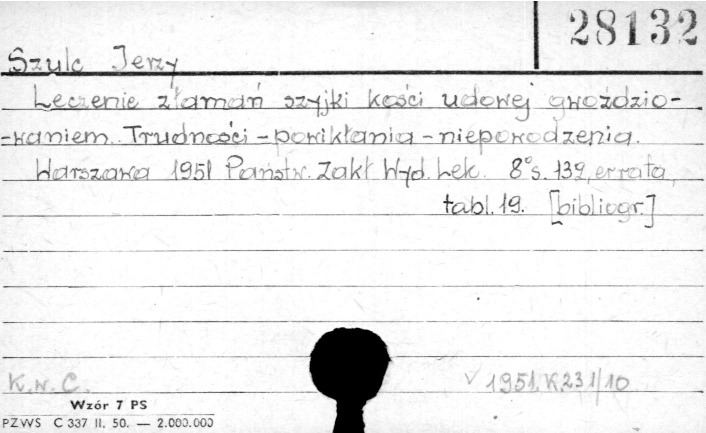 28132
Szulc Jerzy
Leczenie złamań szyjki kości udowej gwoździo-
-waniem. Trudności - powikłania - niepowodzenia.
Warszawa 1951 Państw. Zakł. Wyd. Lek. 8° s. 139, errata,
tabl. 19. [bibliogr.]
K.w.C. √ 1951.K231/10
Wzór 7 PS
PZWS C 337 II. 50. — 2.000.000